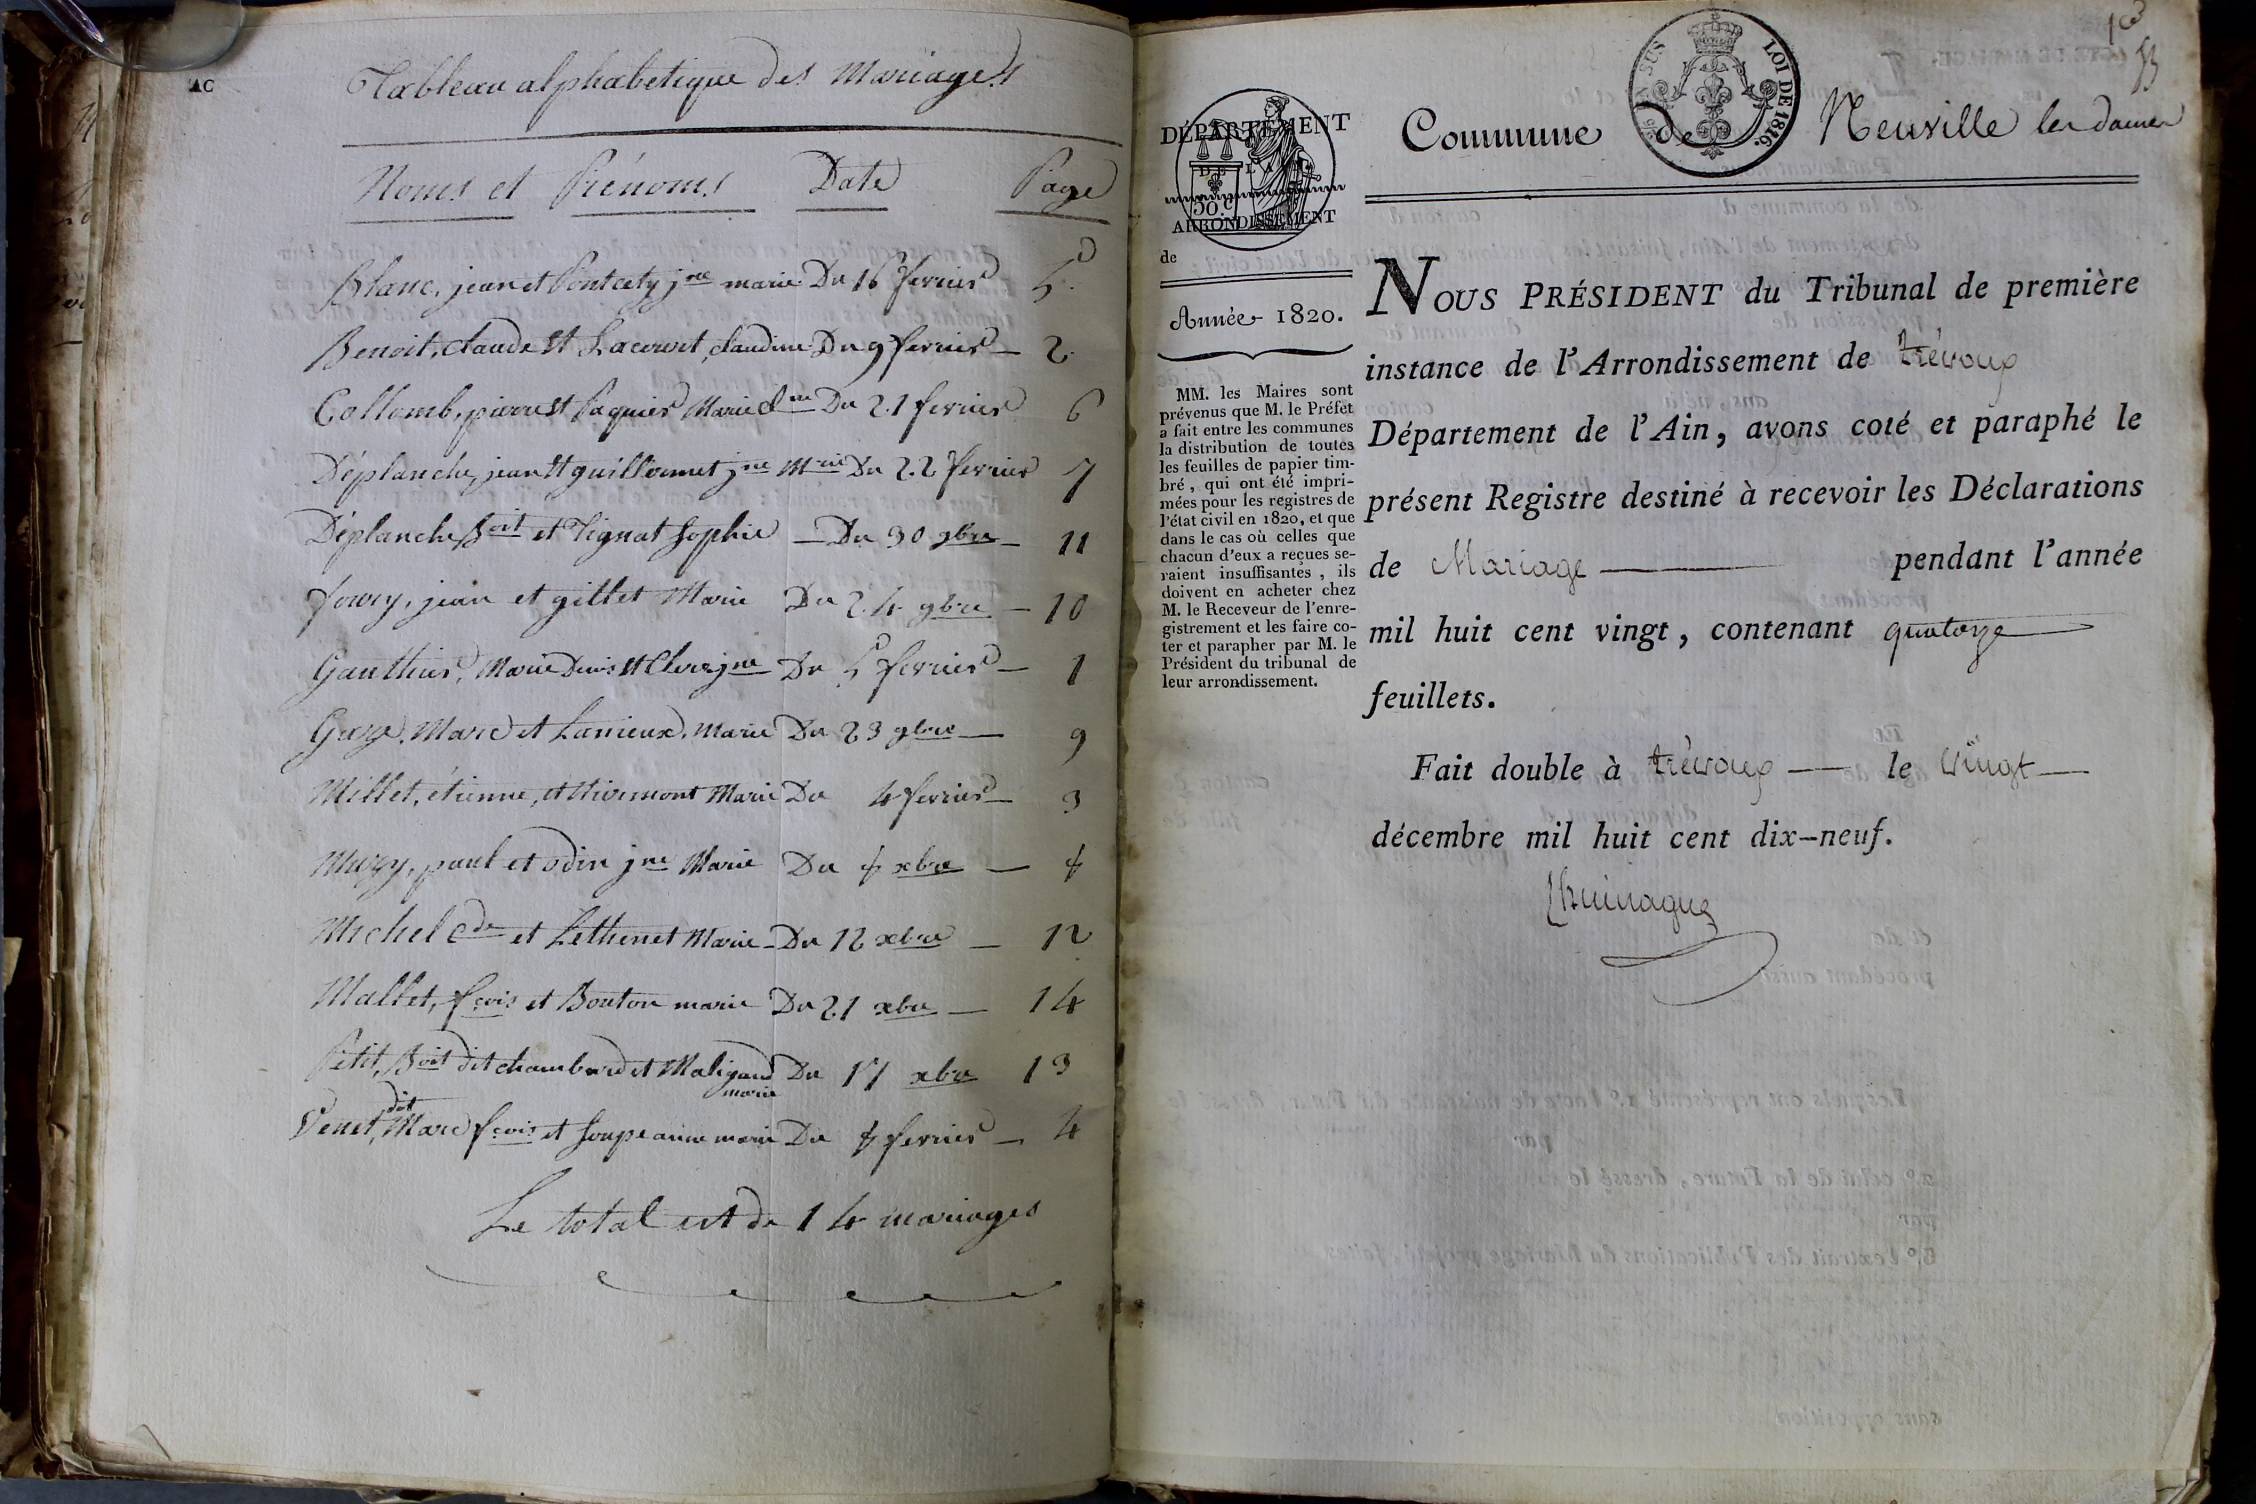 AC
Tableau alphabetique des Mariages
Noms et Prénoms Date Page
Blanc, jean et Pontcety jne marie Du 16 fevrier 5
Benoit, claude et Lacouvet, claudine Du 9 fevrier — 2
Collomb, pierre et Paquier Marie Du 21 fevrier 6
Déplanche, jean et guillomet jne Mrie Du 22 fevrier 7
Déplanche Boit et Tignat Sophie — Du 30 9bre — 11
jean et gillet Marie Du 24 9bre — 10
Gauthier, Marie Denis et Clerc jne Du 5 fevrier — 1
Marc et Lanieux, Marie Du 23 9bre — 9
Millet, étienne, et Marie Du 4 fevrier — 3
paul et odin jne Marie Du xbre —
Michel Cde et Lethenet Marie — Du 12 xbre — 12
Mallet, fcois et Bouton marie Du 21 xbre — 14
Petit, Boit dit chambard et Maligand Du 17 xbre 13
marie
dit
Venet, Marc fcois et Soupe anne marie Du fevrier — 4
Le total est de 14 mariages
53
LOI DE 1816.
Commune de Neuville les dames
DÉPARTEMENT
DE LA
50 c.
ARRONDISSEMENT
de
Année 1820.
MM. les Maires sont
prévenus que M. le Préfet
a fait entre les communes
la distribution de toutes
les feuilles de papier tim-
bré, qui ont été impri-
mées pour les registres de
l'état civil en 1820, et que
dans le cas où celles que
chacun d'eux a reçues se-
raient insuffisantes, ils
doivent en acheter chez
M. le Receveur de l'enre-
gistrement et les faire co-
ter et parapher par M. le
Président du tribunal de
leur arrondissement.
NOUS PRÉSIDENT du Tribunal de première
instance de l'Arrondissement de trévoux
Département de l'Ain, avons coté et paraphé le
présent Registre destiné à recevoir les Déclarations
de Mariage — pendant l'année
mil huit cent vingt, contenant quatorze
feuillets.
Fait double à trévoux — le vingt —
décembre mil huit cent dix-neuf.